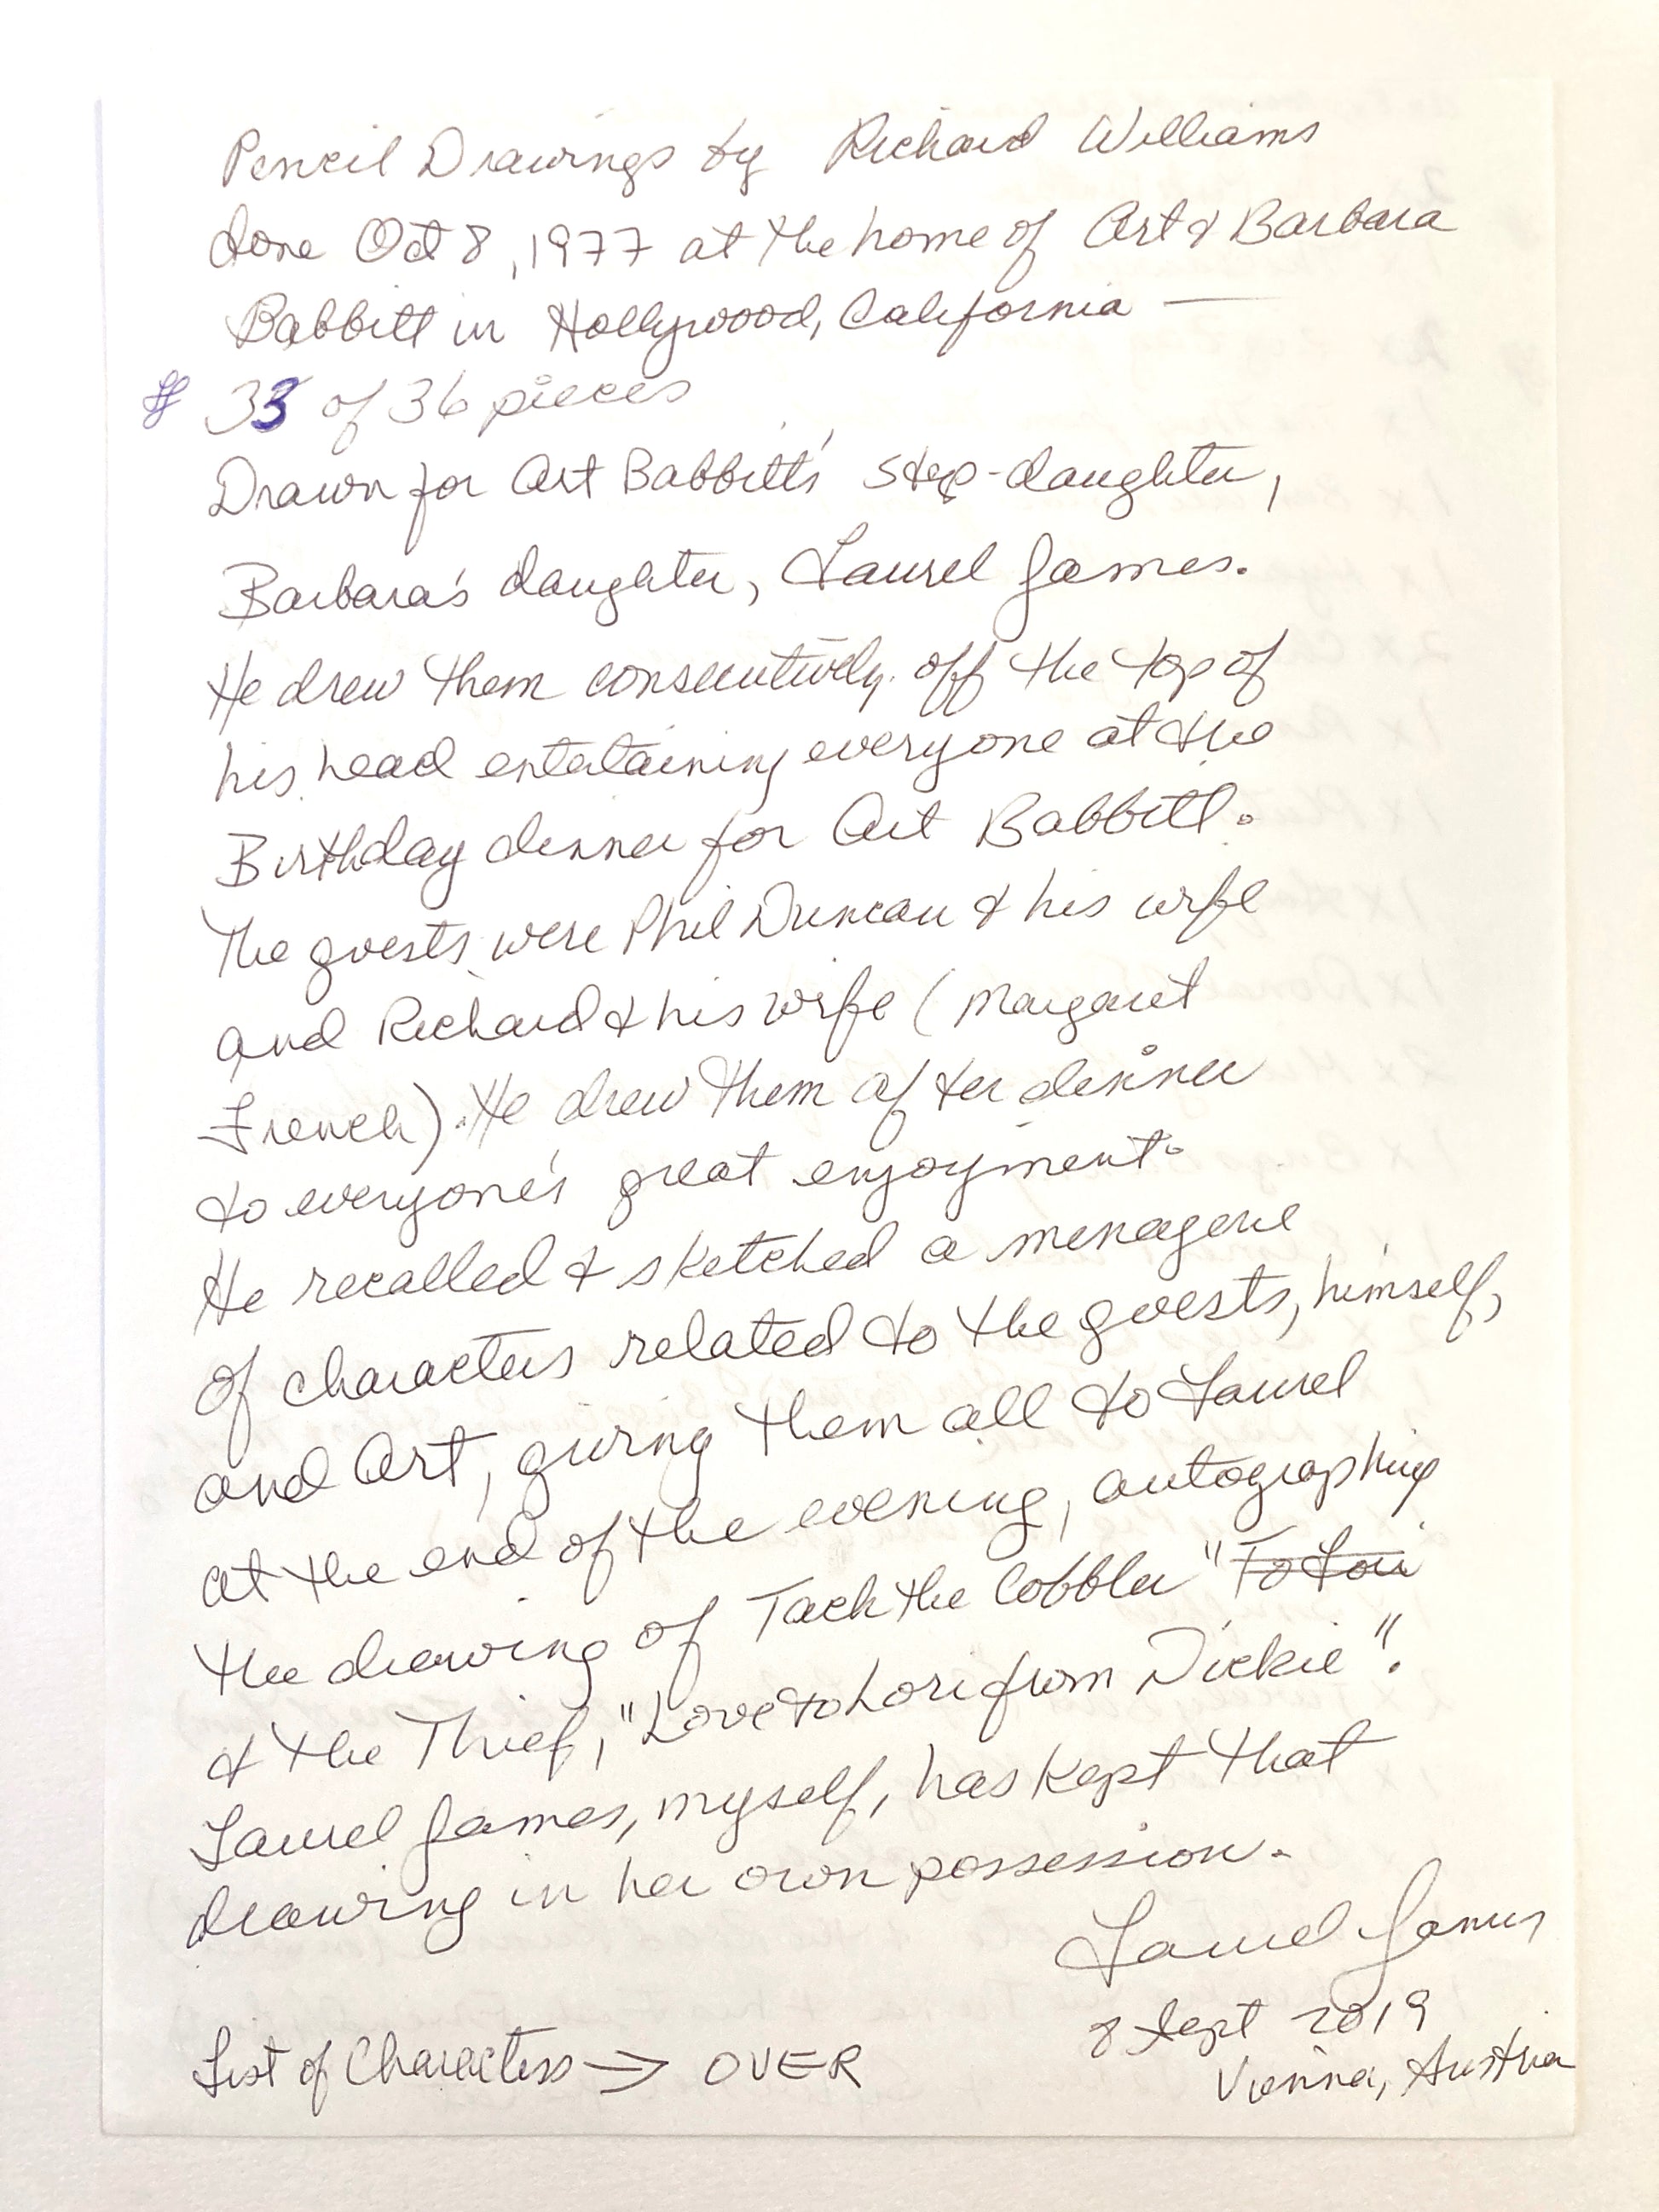 Pencil Drawings by Richard Williams
done Oct 8, 1977 at the home of Art & Barbara
Babbitt in Hollywood, California —
# 33 of 36 pieces
Drawn for Art Babbitt's step-daughter,
Barbara's daughter, Laurel James.
He drew them consecutively off the top of
his head entertaining everyone at the
Birthday dinner for Art Babbitt.
The guests were Phil Duncan & his wife
and Richard & his wife (Margaret
French). He drew them after dinner
to everyone's great enjoyment.
He recalled & sketched a menagerie
of characters related to the guests, himself,
and Art, giving them all to Laurel
at the end of the evening, autographing
the drawing of Tack the Cobbler "To Lori
& the Thief, "Love to Lori from Dickie".
Laurel James, myself, has kept that
drawing in her own possession.
Laurel James
8 Sept 2019
Vienna, Austria
List of Characters → OVER